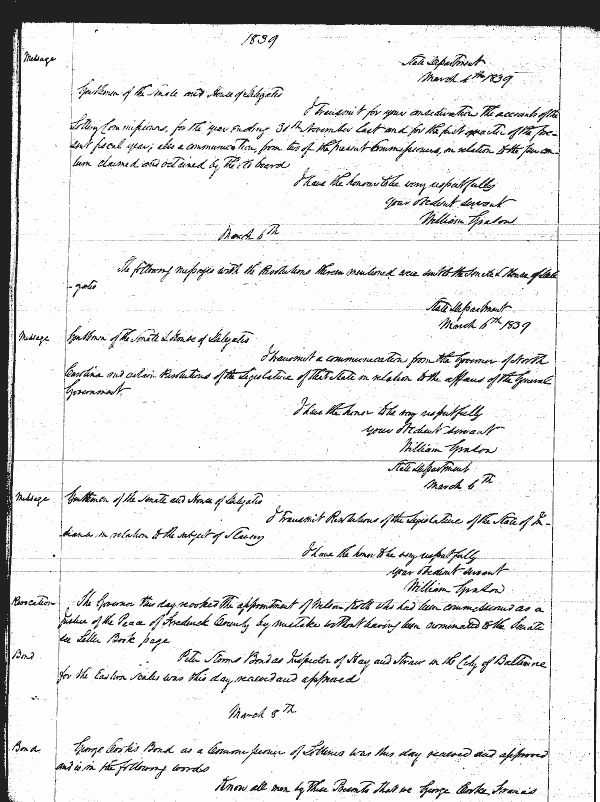 1839
Message
State Department
March 4th 1839
Gentlemen of the Senate and House of Delegates
I transmit for your consideration the accounts of the
Lottery Commissioners, for the year ending 30th November last and for the first quarter of the pre-
sent fiscal year; also a communication, from two of the present Commissioners, in relation to the per cen-
tum claimed and retained by the board
I have the honour to be very respectfully
your obedient servant
William Grason
March 6th
The following messages with the Resolutions therein mentioned were sent to the Senate & House of Dele-
-gates
State Department
March 6th 1839
Message
Gentlemen of the Senate & House of Delegates
I transmit a communication from the Governor of North
Carolina and certain Resolutions of the Legislature of that State in relation to the affairs of the General
Government.
I have the honor to be very respectfully
your obedient servant
William Grason
State Department
March 6th
Message
Gentlemen of the Senate and House of Delegates
I transmit Resolutions of the Legislature of the State of In-
diana in relation to the subject of Slavery
I have the honor to be very respectfully
your obedient servant
William Grason
Revocation
The Governor this day revoked the appointment of Nelson who had been commissioned as a
Justice of the Peace of Frederick County by mistake without having been nominated to the Senate
see Letter Book page
Bond
Peter Storms Bond as Inspector of Hay and Straw in the City of Baltimore
for the Eastern Scales was this day received and approved
March 8th
Bond
George Cooke's Bond as a Commissioner of Lotteries was this day received and approved
and is in the following words
Know all men by these Presents that we George Cooke Francis